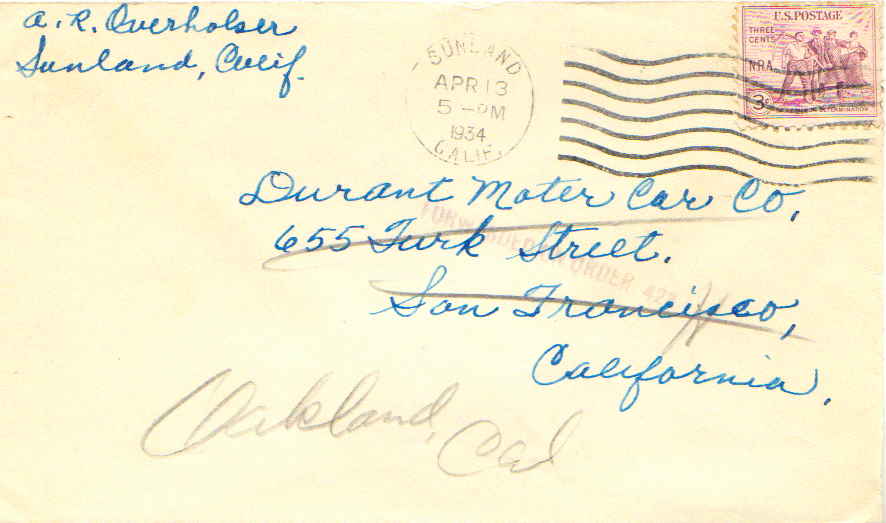 A. R. Overholser
Sunland, Calif.
SUNLAND
APR 13
5 - PM
1934
CALIF.
U.S. POSTAGE
THREE
CENTS
N.R.A.
3¢
Durant Moter Car Co,
655 Turk Street.
San Francisco,
California.
FORWARDED ORDER
Oakland, Cal